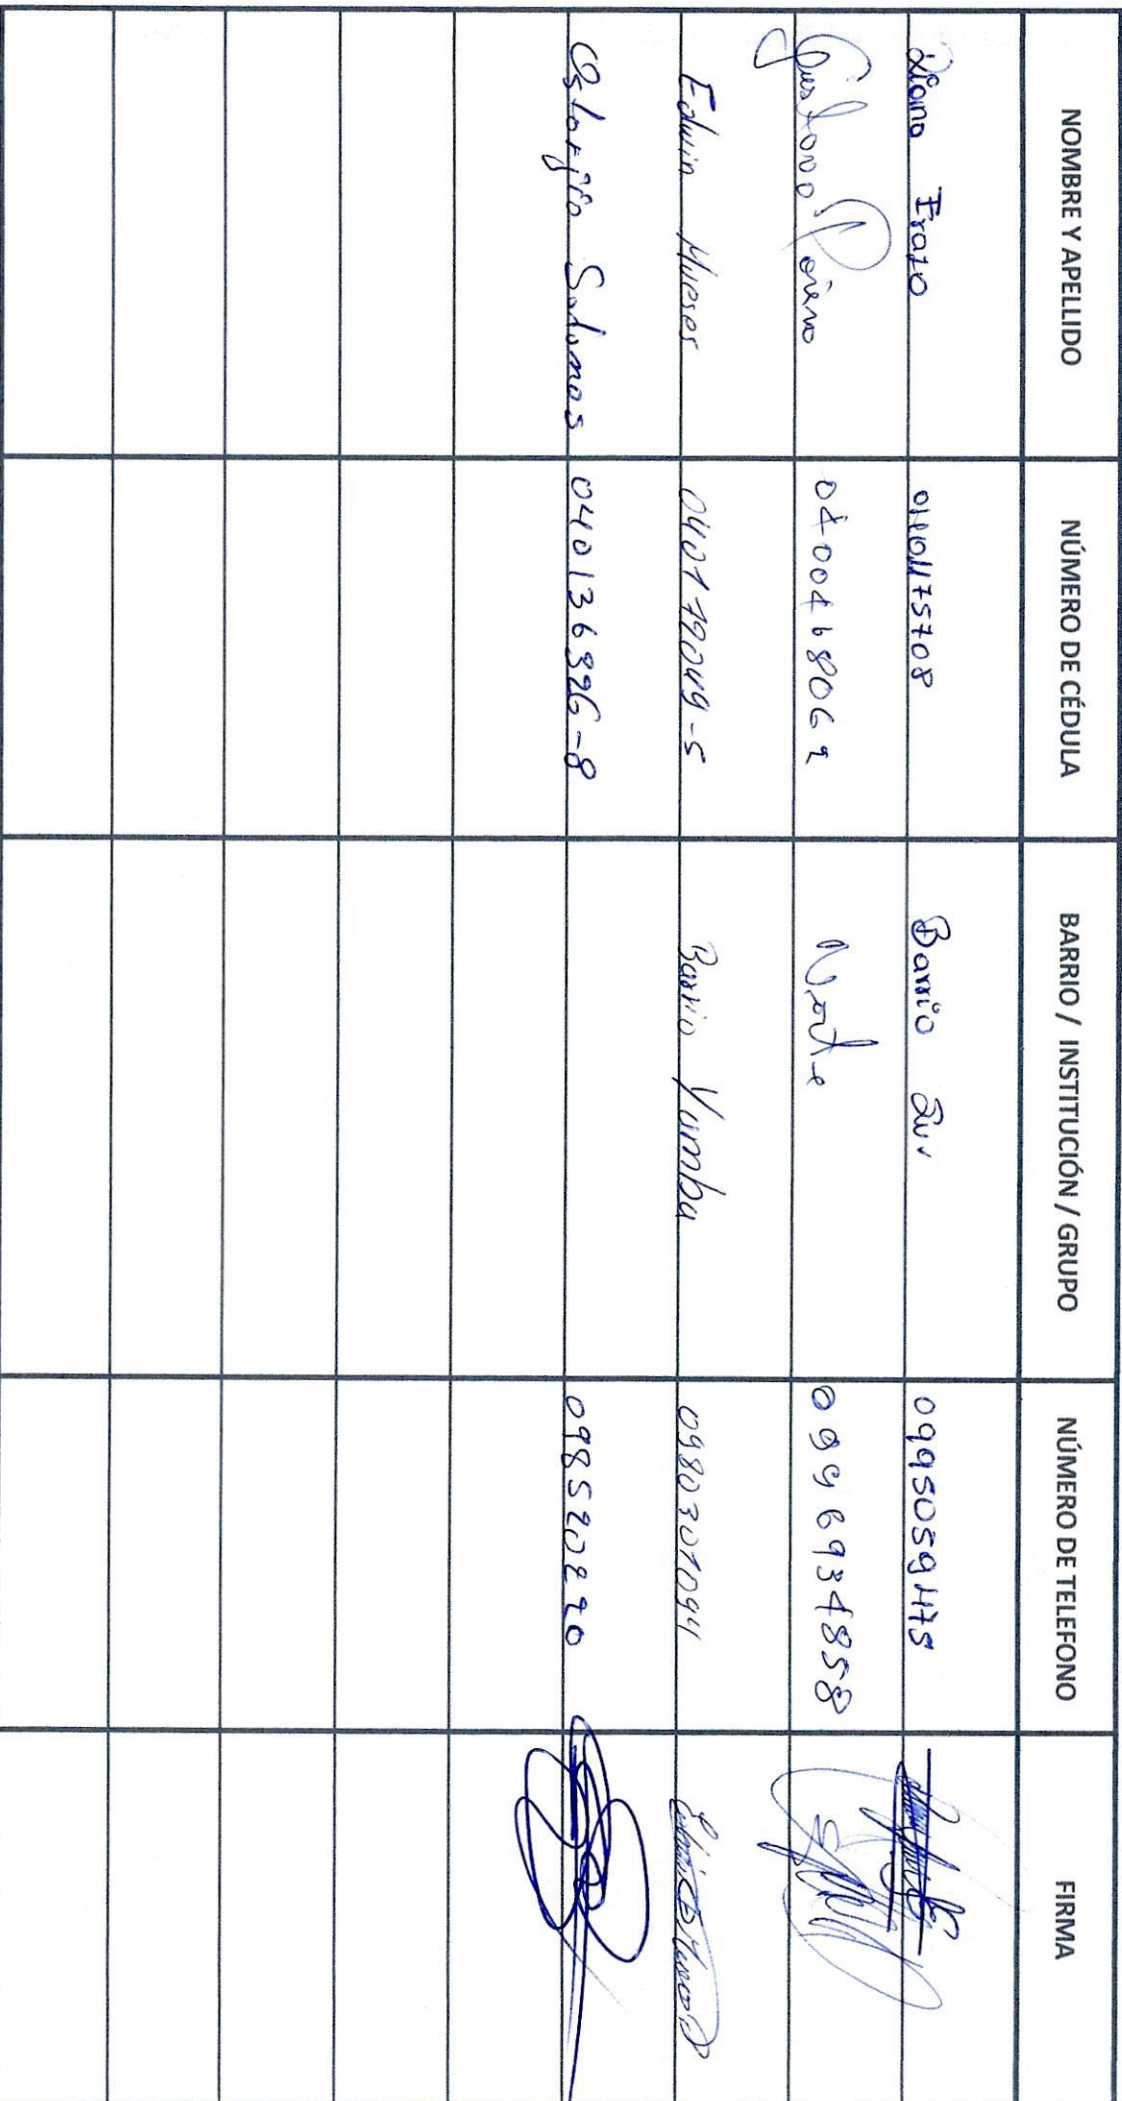 NOMBRE Y APELLIDO NÚMERO DE CÉDULA BARRIO / INSTITUCIÓN / GRUPO NÚMERO DE TELEFONO FIRMA
Diana Erazo 0401475708 Barrio Sur 0995059475
0400468069 Norte 0996934858
Edwin Mueses 040179049-5 Barrio Yumba 0980301094
Salomas 040136926-8 098520290